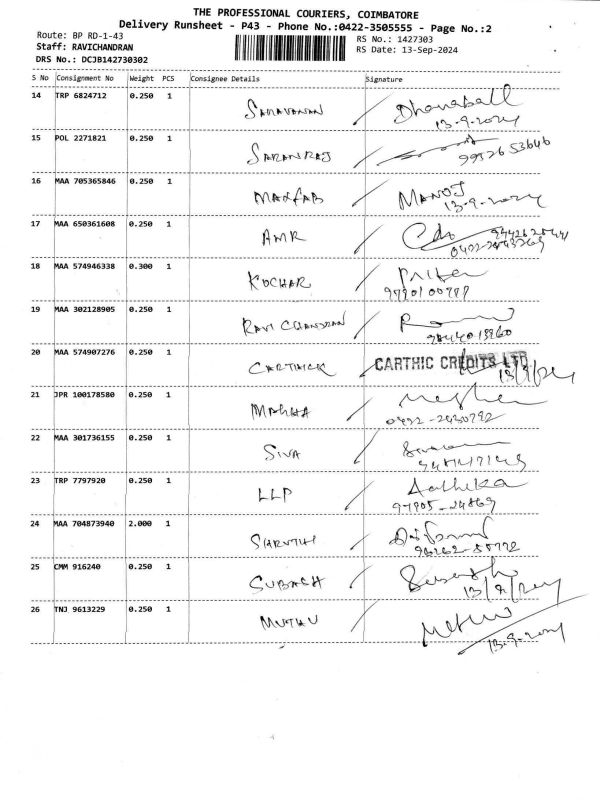 THE PROFESSIONAL COURIERS, COIMBATORE
Delivery Runsheet - P43 - Phone No.:0422-3505555 - Page No.:2
Route: BP RD-1-43 RS No.: 1427303
Staff: RAVICHANDRAN RS Date: 13-Sep-2024
DRS No.: DCJB142730302
S No Consignment No Weight PCS Consignee Details Signature
14 TRP 6824712 0.250 1 SARAVANAN Dhanaball
13-9-2024
15 POL 2271821 0.250 1 SARANRAJ
99526 53646
16 MAA 705365846 0.250 1 MANOJ
13-9-2024
17 MAA 650361608 0.250 1 AMR
18 MAA 574946338 0.300 1 KOCHAR
19 MAA 302128905 0.250 1 RAVI CHANDRAN
20 MAA 574907276 0.250 1 CARTHICK CARTHIC CREDITS LTD
13/9/24
21 JPR 100178580 0.250 1
0422-2430792
22 MAA 301736155 0.250 1 SIVA
23 TRP 7797920 0.250 1 LLP Aathika
97905-24869
24 MAA 704873940 2.000 1 SHRUTHI
25 CMM 916240 0.250 1 SUBASH
26 TNJ 9613229 0.250 1 MUTHU
13-9-2024